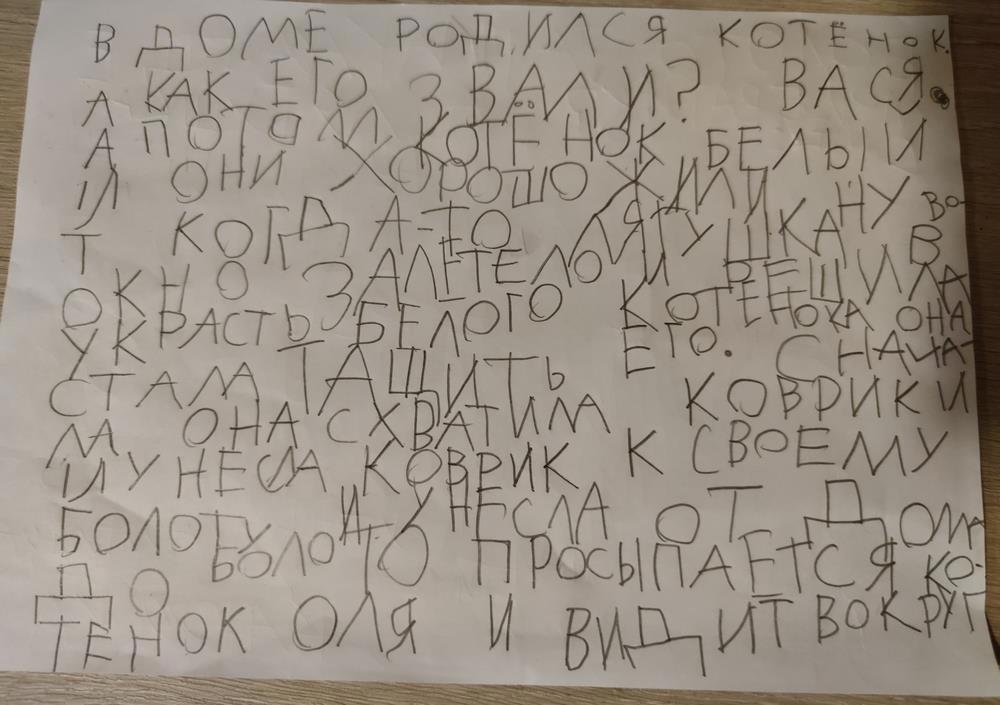 В ДОМЕ РОДИЛСЯ КОТЁНОК.
А КАК ЕГО ЗВАЛИ? ВАСЯ.
А ПОТОМ КОТЁНОК БЕЛЫЙ
И ОНИ ХОРОШО ЖИЛИ НУ ВО-
Т КОГДА-ТО ЛЯГУШКА В
ОКНО ЗАЛЕТЕЛО И РЕШИЛА
УКРАСТЬ БЕЛОГО КОТЕНОКА ОНА
СТАЛА ТАЩИТЬ ЕГО. СНАЧА-
ЛА ОНА СХВАТИЛА КОВРИКИ
И УНЕСЛА КОВРИК К СВОЕМУ
БОЛОТУ И УНЕСЛА ОТ ДОМА
ДО БОЛОТО ПРОСЫПАЕТСЯ КО-
ТЕНОК ОЛЯ И ВИДИТ ВОКРУГ